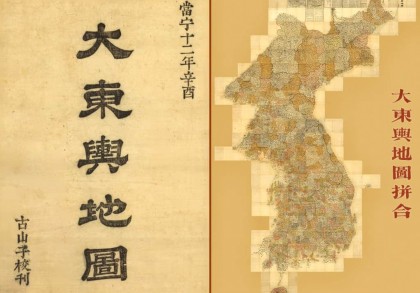 當宁十二年辛酉
大東輿地圖
古山子校刊
大東輿地圖拼合